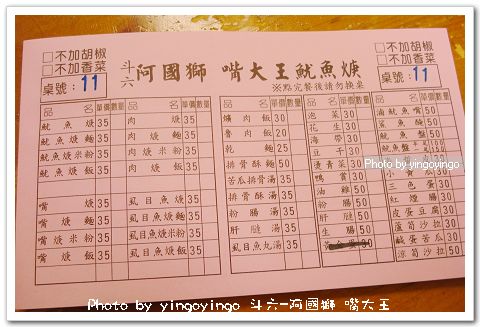 □不加胡椒
□不加香菜
桌號：11
斗六 阿國獅 嘴大王魷魚焿
※點完餐後請勿換桌
□不加胡椒
□不加香菜
桌號：11
品名 單價 數量
魷魚焿 35
魷魚焿麵 35
魷魚焿米粉 35
魷魚焿飯 35
嘴焿 35
嘴焿麵 35
嘴焿米粉 35
嘴焿飯 35
品名 單價 數量
肉焿 35
肉焿麵 35
肉焿米粉 35
肉焿飯 35
虱目魚焿 35
虱目魚焿麵 35
虱目魚焿粉 35
虱目魚焿飯 35
品名 單價 數量
爌肉飯 30
魯肉飯 20
乾麵 25
排骨酥麵 50
苦瓜排骨湯 50
排骨酥湯 50
粉腸湯 50
肝腱湯 50
虱目魚丸湯 30
品名 單價 數量
泡菜 30
花生 30
海帶 30
豆子 30
燙青菜 30
鴨賞
油雞 50
粉腸 50
肝腱 50
生腸 50
30
品名 單價 數量
滷魷魚嘴 50
鯊魚煙 50
魷魚盤
三色蛋 30
紅煙腸 50
皮蛋豆腐 30
蘆筍沙拉 50
鹹蛋苦瓜 50
涼筍沙拉 50
Photo by yingoyingo
Photo by yingoyingo 斗六-阿國獅 嘴大王